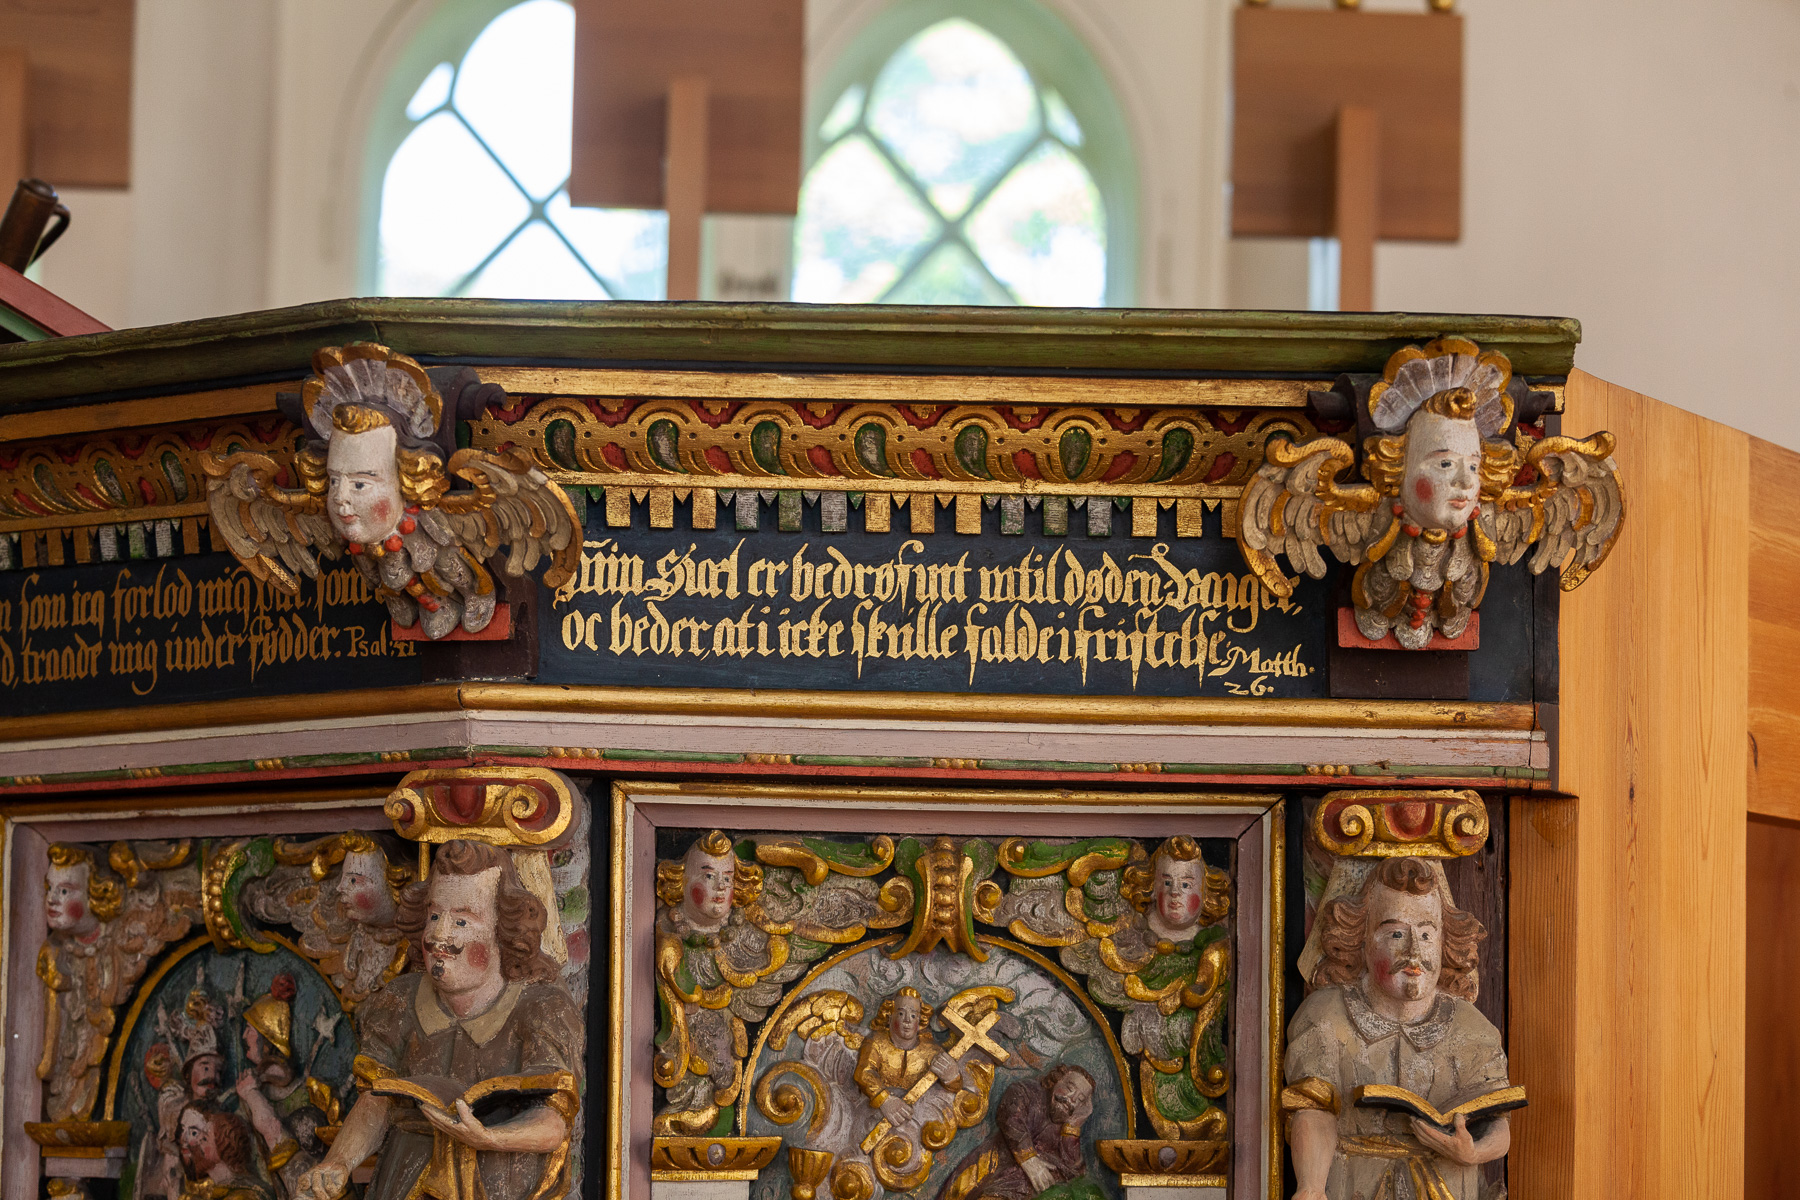 som ieg forlod mig paa, som
traade mig under fødder. Psal: 41
Min Siæl er bedrøfuit indtil døden: Vaager,
oc beder, at i icke skulle falde i fristelse. Matth.
26.